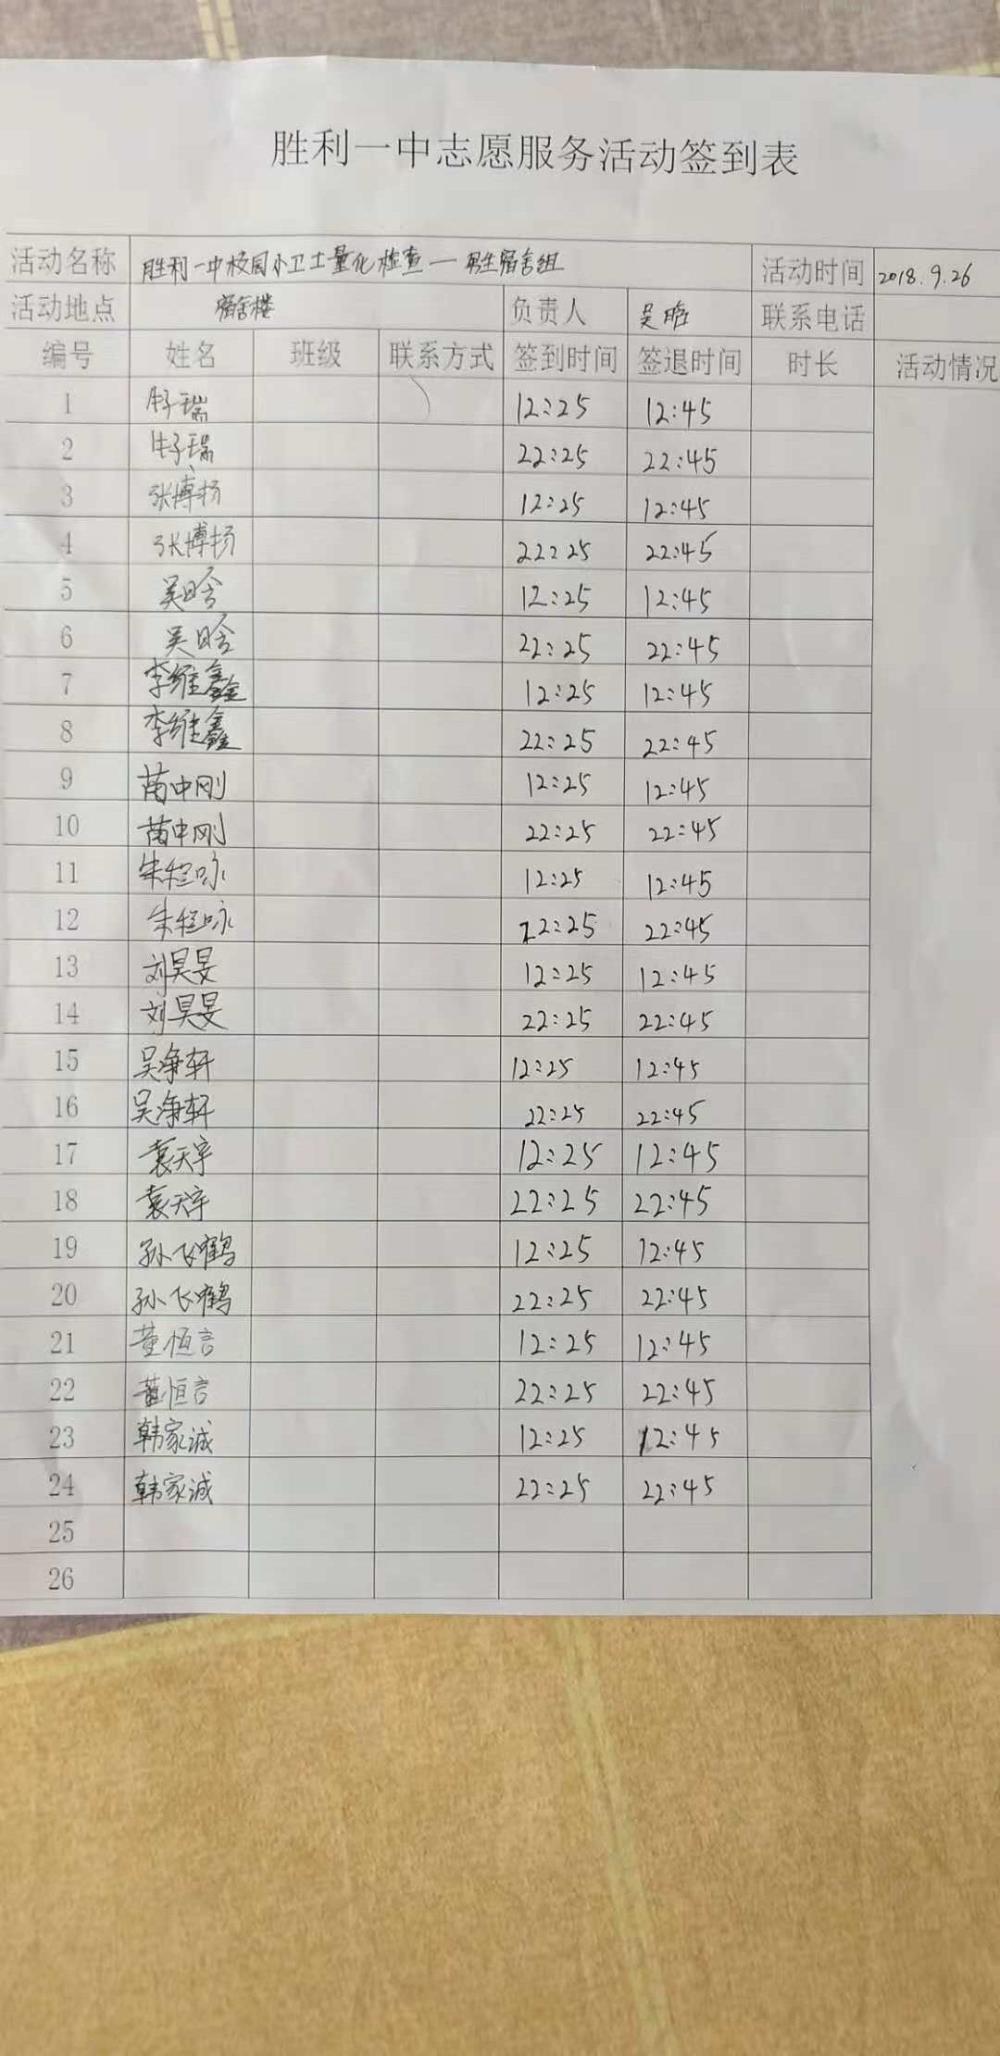 胜利一中志愿服务活动签到表
活动名称 胜利一中校园小卫士量化检查—男生宿舍组 活动时间 2018.9.26
活动地点 宿舍楼 负责人 吴晗 联系电话
编号 姓名 班级 联系方式 签到时间 签退时间 时长 活动情况
1 牛子瑞 12:25 12:45
2 牛子瑞 22:25 22:45
3 张博扬 12:25 12:45
4 张博扬 22:25 22:45
5 吴晗 12:25 12:45
6 吴晗 22:25 22:45
7 李维鑫 12:25 12:45
8 李维鑫 22:25 22:45
9 苗中刚 12:25 12:45
10 苗中刚 22:25 22:45
11 朱程咏 12:25 12:45
12 朱程咏 22:25 22:45
13 刘昊旻 12:25 12:45
14 刘昊旻 22:25 22:45
15 吴净轩 12:25 12:45
16 吴净轩 22:25 22:45
17 袁天宇 12:25 12:45
18 袁天宇 22:25 22:45
19 孙飞鹤 12:25 12:45
20 孙飞鹤 22:25 22:45
21 董恒言 12:25 12:45
22 董恒言 22:25 22:45
23 韩家诚 12:25 12:45
24 韩家诚 22:25 22:45
25
26